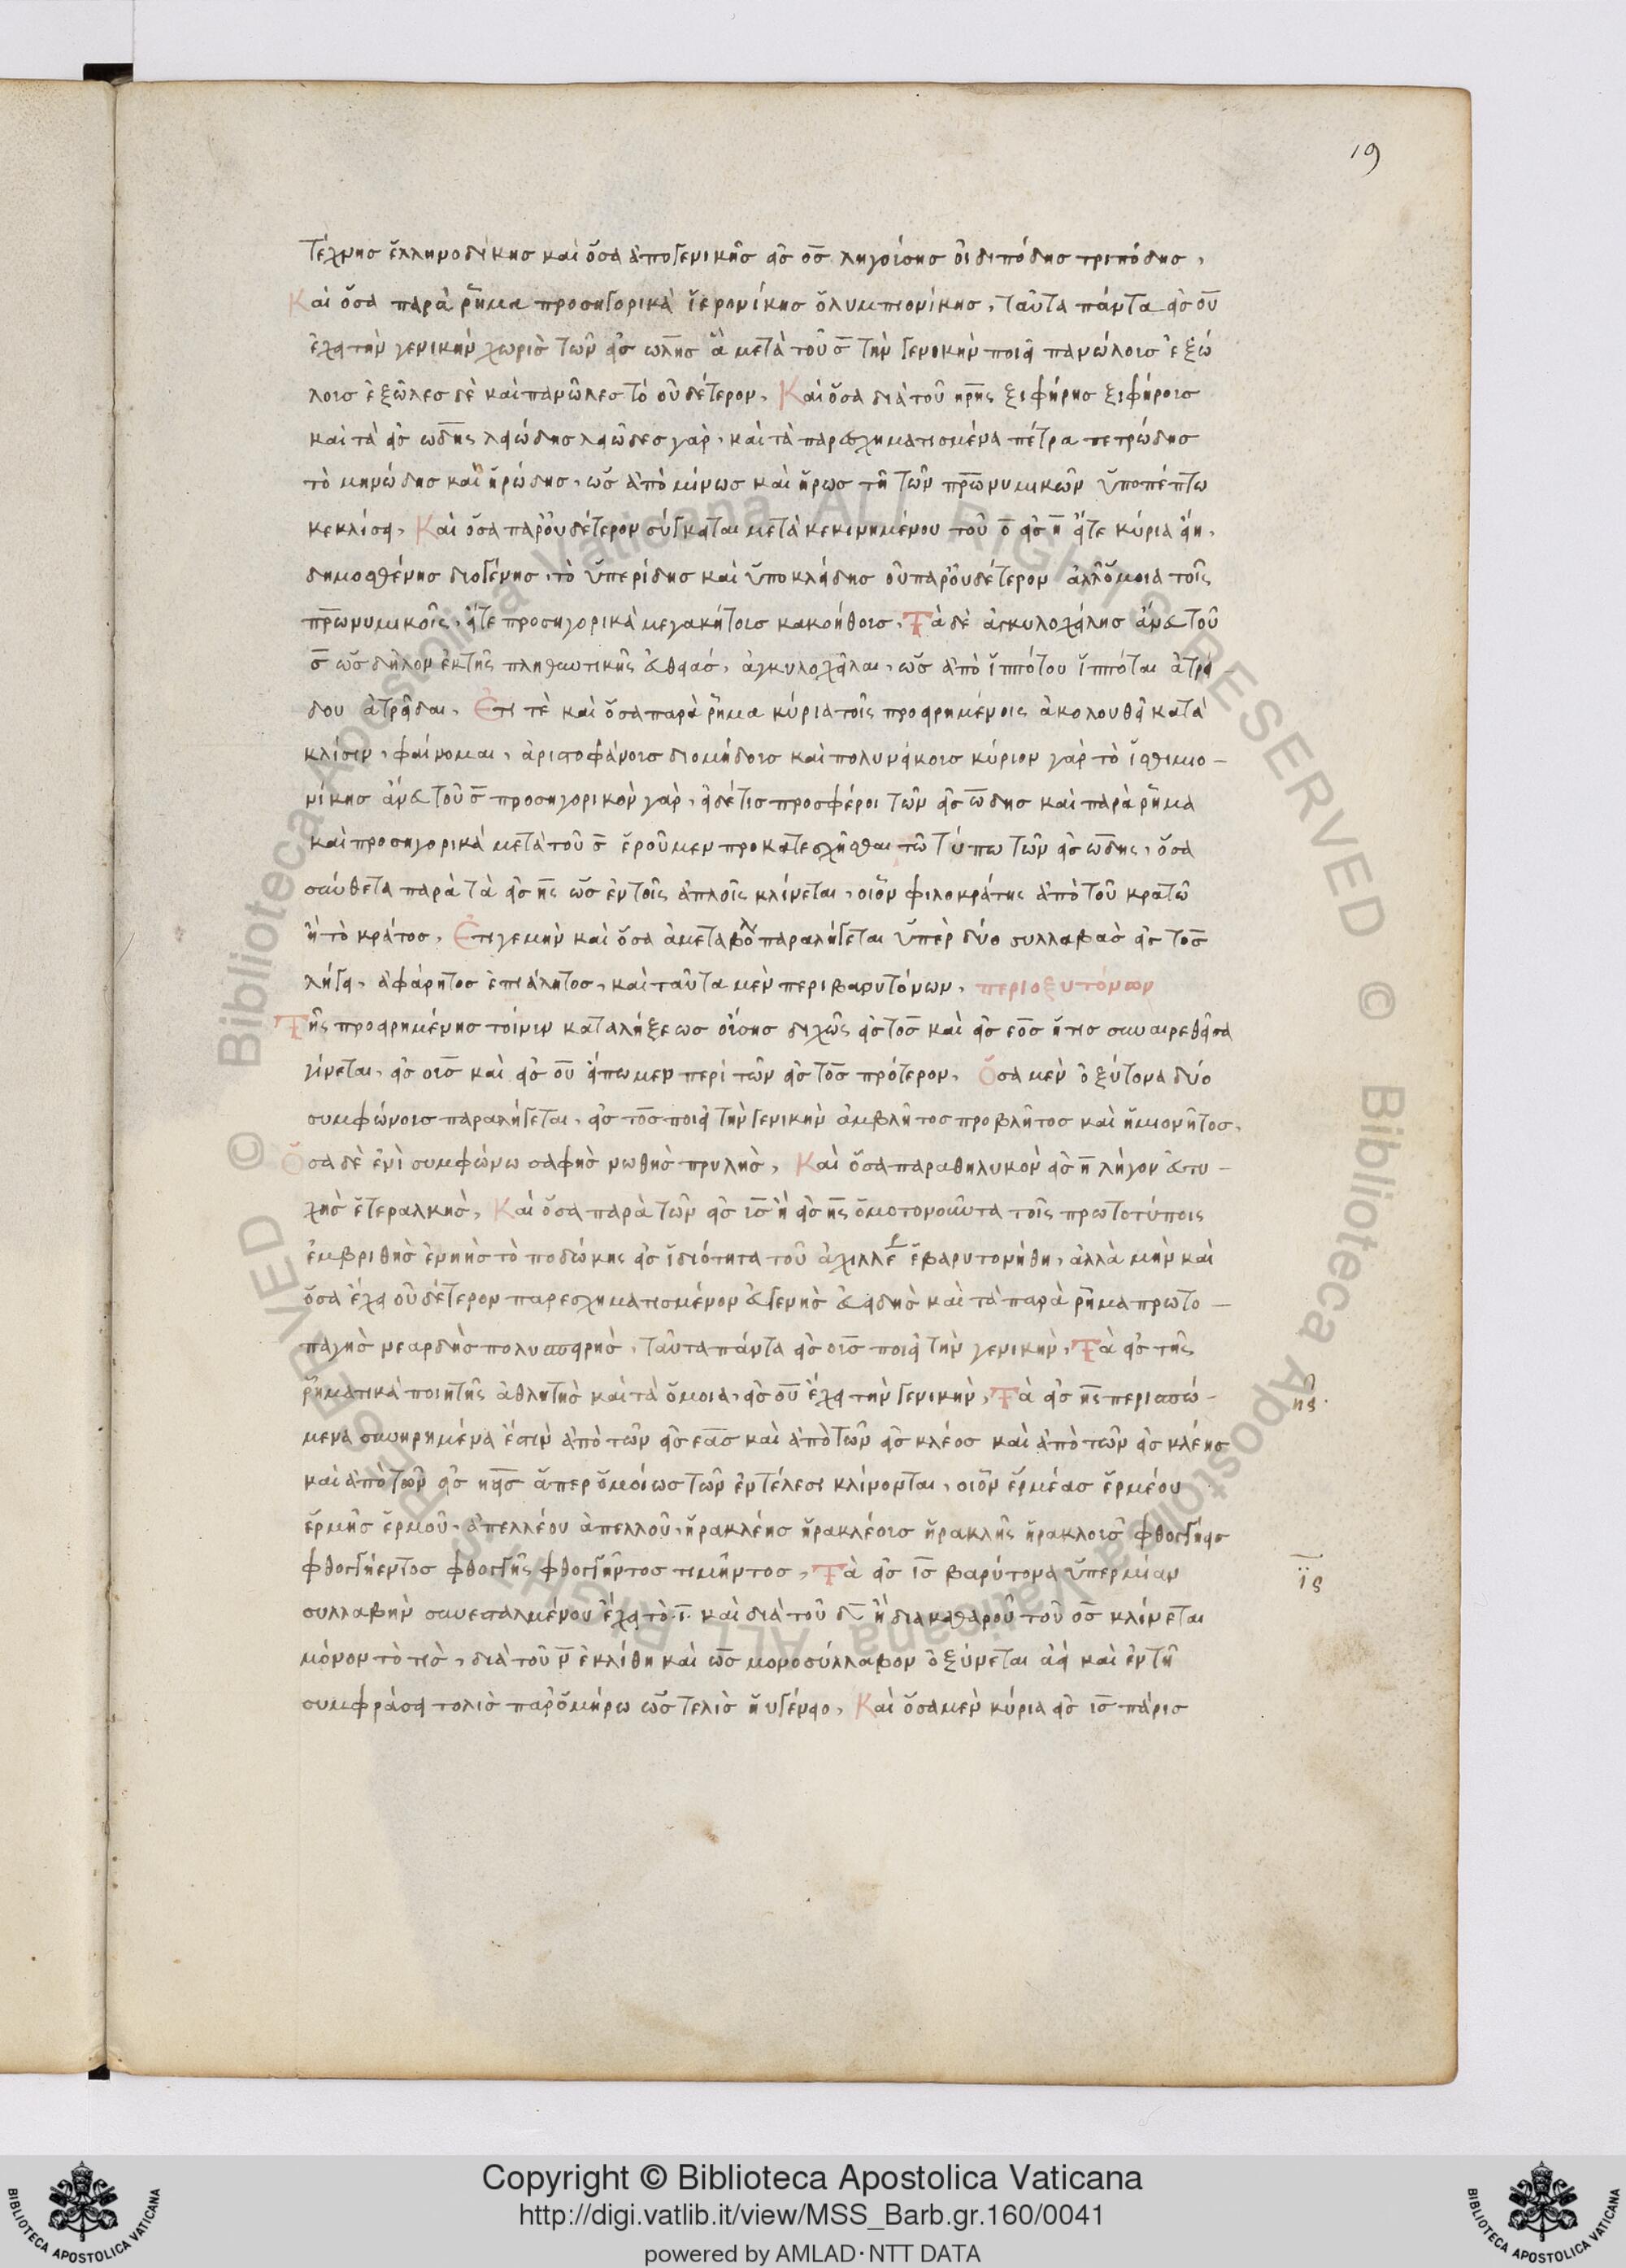 19
τέχνης ἑλληνοδίκης καὶ ὅσα ἀπο γενικῆς εἰς ος ληγούσης οἰδιπόδης τριπόδης,
Καὶ ὅσα παρὰ ῥῆμα προσηγορικὰ ἱερονίκης ὀλυμπιονίκης, ταῦτα πάντα εἰς ου
ἔχει τὴν γενικὴν χωρὶς τῶν εἰς ωλης ἃ μετὰ τοῦ σ τὴν γενικὴν ποιεῖ πανώλους ἐξώ
λους ἐξῶλες δὲ καὶ πανῶλες τὸ οὐδέτερον, Καὶ ὅσα διὰ τοῦ ηρης ξιφήρης ξιφήρους
καὶ τὰ εἰς ωδης λειώδης λειῶδες γὰρ, καὶ τὰ παρωχηματισμένα πέτρα πετρώδης
τὸ μινώδης καὶ ἡρώδης, ὡς ἀπὸ μίνως καὶ ἥρως τῆ τῶν πρωνυμικῶν ὑποπέπτω
κε κλίσει, Καὶ ὅσα παρ' οὐδέτερον σύγκειται μετὰ κεκινημένου τοῦ ο εἰς η εἴτε κύρια εἴη,
δημοσθένης διογένης, τὸ ὑπερίδης καὶ ὑποκλείδης οὐ παρ' οὐδέτερον ἀλλ' ὅμοια τοῖς
πρωνυμικοῖς, εἴτε προσηγορικὰ μεγακήτους κακοήθους, Τὰ δὲ ἀγκυλοχείλης ἄνευ τοῦ
σ ὡς δῆλον ἐκ τῆς πληθυντικῆς εὐθείας, ἀγκυλοχεῖλαι, ὡς ἀπὸ ἱππότου ἱππόται ἀτρεί
δου ἀτρεῖδαι, Ἔτι τὲ καὶ ὅσα παρὰ ῥῆμα κύρια τοῖς προειρημένοις ἀκολουθεῖ κατὰ
κλίσιν, φαίνομαι, ἀριστοφάνους διομήδους καὶ πολυνείκους κύριον γὰρ τὸ ἰσθμιο-
νίκης ἄνευ τοῦ σ προσηγορικὸν γὰρ, εἰ δέ τις προσφέροι τῶν εἰς ωδης καὶ παρὰ ῥῆμα
καὶ προσηγορικὰ μετὰ τοῦ σ ἐροῦμεν προκατεσχῆσθαι τῶ τύπω τῶν εἰς ωδης, ὅσα
σύνθετα παρὰ τὰ εἰς ης ὡς ἐν τοῖς ἁπλοῖς κλίνεται, οἷον φιλοκράτης ἀπὸ τοῦ κρατῶ
ἢ τὸ κράτος, Ἔτι γεμὴν καὶ ὅσα ἀμεταβόλ παραλήγεται ὑπὲρ δύο συλλαβὰς εἰς τος
λήγει, ἀφάρητος ἐπιάλητος, καὶ ταῦτα μὲν περι βαρυτόνων, περι οξυτόνων
Τῆς προειρημένης τοίνυν καταλήξεως οὔσης διχῶς εἰς τος καὶ εἰς εος ἥτις συναιρεθεῖσα
γίνεται, εἰς ους καὶ εἰς ου εἴπωμεν περὶ τῶν εἰς τος πρότερον, Ὅσα μὲν ὀξύτονα δύο
συμφώνοις παραλήγεται, εἰς τος ποιεῖ τὴν γενικὴν ἀμβλῆτος προβλῆτος καὶ ἡμιονῆτος,
Ὅσα δὲ ἑνὶ συμφώνω σαφὴς νωθὴς πρυλὴς, Καὶ ὅσα παρα θηλυκὸν εἰς η λήγον εὐτυ-
χὴς ἑτεραλκὴς, Καὶ ὅσα παρὰ τῶν εἰς ις ἢ εἰς ης ὁμοτονοῦντα τοῖς πρωτοτύποις
ἐμβριθὴς ἐνηὴς τὸ ποδώκης εἰς ἰδιότητα τοῦ ἀχιλλέ ἐβαρυτονήθη, ἀλλὰ μὴν καὶ
ὅσα ἔχει οὐδέτερον παρεσχηματισμένον εὐγενὴς εὐειδὴς καὶ τὰ παρὰ ῥῆμα πρωτο-
παγὴς νεαρδὴς πολυασφρὴς, ταῦτα πάντα εἰς ους ποιεῖ τὴν γενικὴν, Τὰ εἰς της
ῥηματικὰ ποιητὴς ἀθλητὴς καὶ τὰ ὅμοια, εἰς ου ἔχει τὴν γενικὴν, Τὰ εἰς ης περισπώ-
μενα συνῃρημένα ἐστὶν ἀπὸ τῶν εἰς εας καὶ ἀπὸ τῶν εἰς κλέος καὶ ἀπὸ τῶν εἰς κλέης
ης.
καὶ ἀπὸ τῶν εἰς ηεις ἅπερ ὁμοίως τῶν ἐντέλεσι κλίνονται, οἷον ἑρμέας ἑρμέου
ἑρμῆς ἑρμοῦ, ἀπελλέου ἀπελλοῦ, ἡρακλέης ἡρακλέους ἡρακλῆς ἡρακλοῦς φθογγήεις
φθογγήεντος φθογγῆς φθογγῆντος τιμῆντος, Τὰ εἰς ις βαρύτονα ὑπερμίαν
ις
συλλαβὴν συνεσταλμένου ἔχει τὸ ι καὶ διὰ τοῦ δ ἢ δια καθαροῦ τοῦ ος κλίνεται
μόνον τὸ τὶς, διὰ τοῦ ν ἐκλίθη καὶ ὡς μονοσύλλαβον ὀξύνεται ἀεὶ καὶ ἐν τῆ
συμφράσει τολιὸ παρ' ὁμήρω ὡς τελιὸ ηὐγένειο, Καὶ ὅσα μὲν κύρια εἰς ις πάρις
Copyright © Biblioteca Apostolica Vaticana
http://digi.vatlib.it/view/MSS_Barb.gr.160/0041
powered by AMLAD·NTT DATA